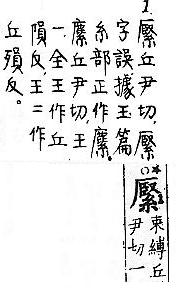 1. 丘尹切。
字誤據玉篇
糸部正作。
丘尹切,王
一、全王作丘
隕反,王二作
丘殞反。
束縛丘
尹切一